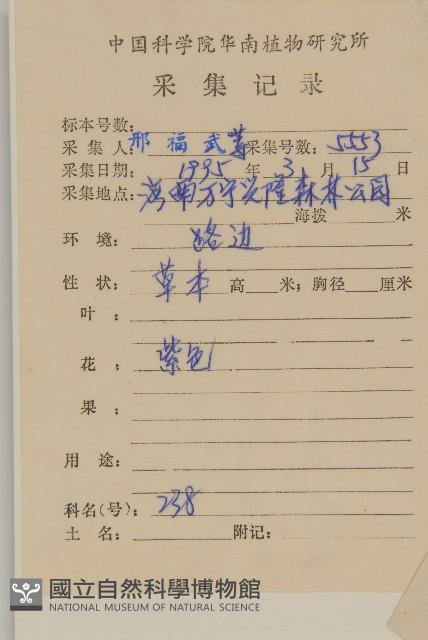 中国科学院华南植物研究所
采集记录
标本号数:
采集人: 邢福武等 采集号数: 5553
采集日期: 1995年3月15日
采集地点: 海南万宁兴隆森林公园
海拨 米
环境: 路边
性状: 草本 高 米; 胸径 厘米
叶:
花: 紫色
果:
用途:
科名(号): 238
土名: 附记:
國立自然科學博物館
NATIONAL MUSEUM OF NATURAL SCIENCE